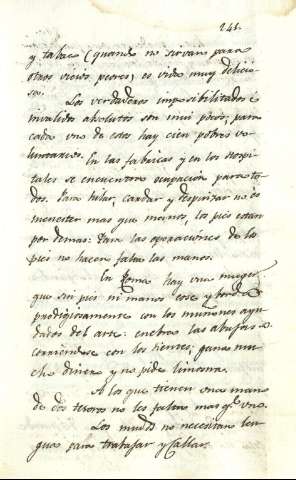 241.
y tabac (quando no sirvan para
otros vicios peores) es vida muy delicio-
sa.
Los verdaderos imposibilitados e
invalidos absolutos son mui pocos; para
cada uno de estos hay cien pobres vo-
luntarios. En las fabricas y en los Hospi-
tales se encuentra ocupacion para to-
dos. Para hilar, cardar y despinzar no es
menester mas que manos, los pies estan
por demas: Para las operaciones de los
pies no hacen falta las manos.
En Roma hay una muger
que sin pies ni manos cose y borda
prodigiosamente con los muñones ayu-
dados del arte: enebra las abujas
con los dientes; gana mu-
cho dinero y no pide limosna.
A los que tienen una mano
de dos tesoros no les falta mas qe. uno.
Los mudos no necesitan len-
gua para trabajar y callar.